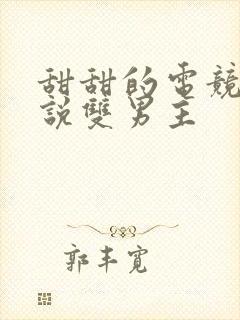 甜甜的電競
說雙男主
郭丰寬